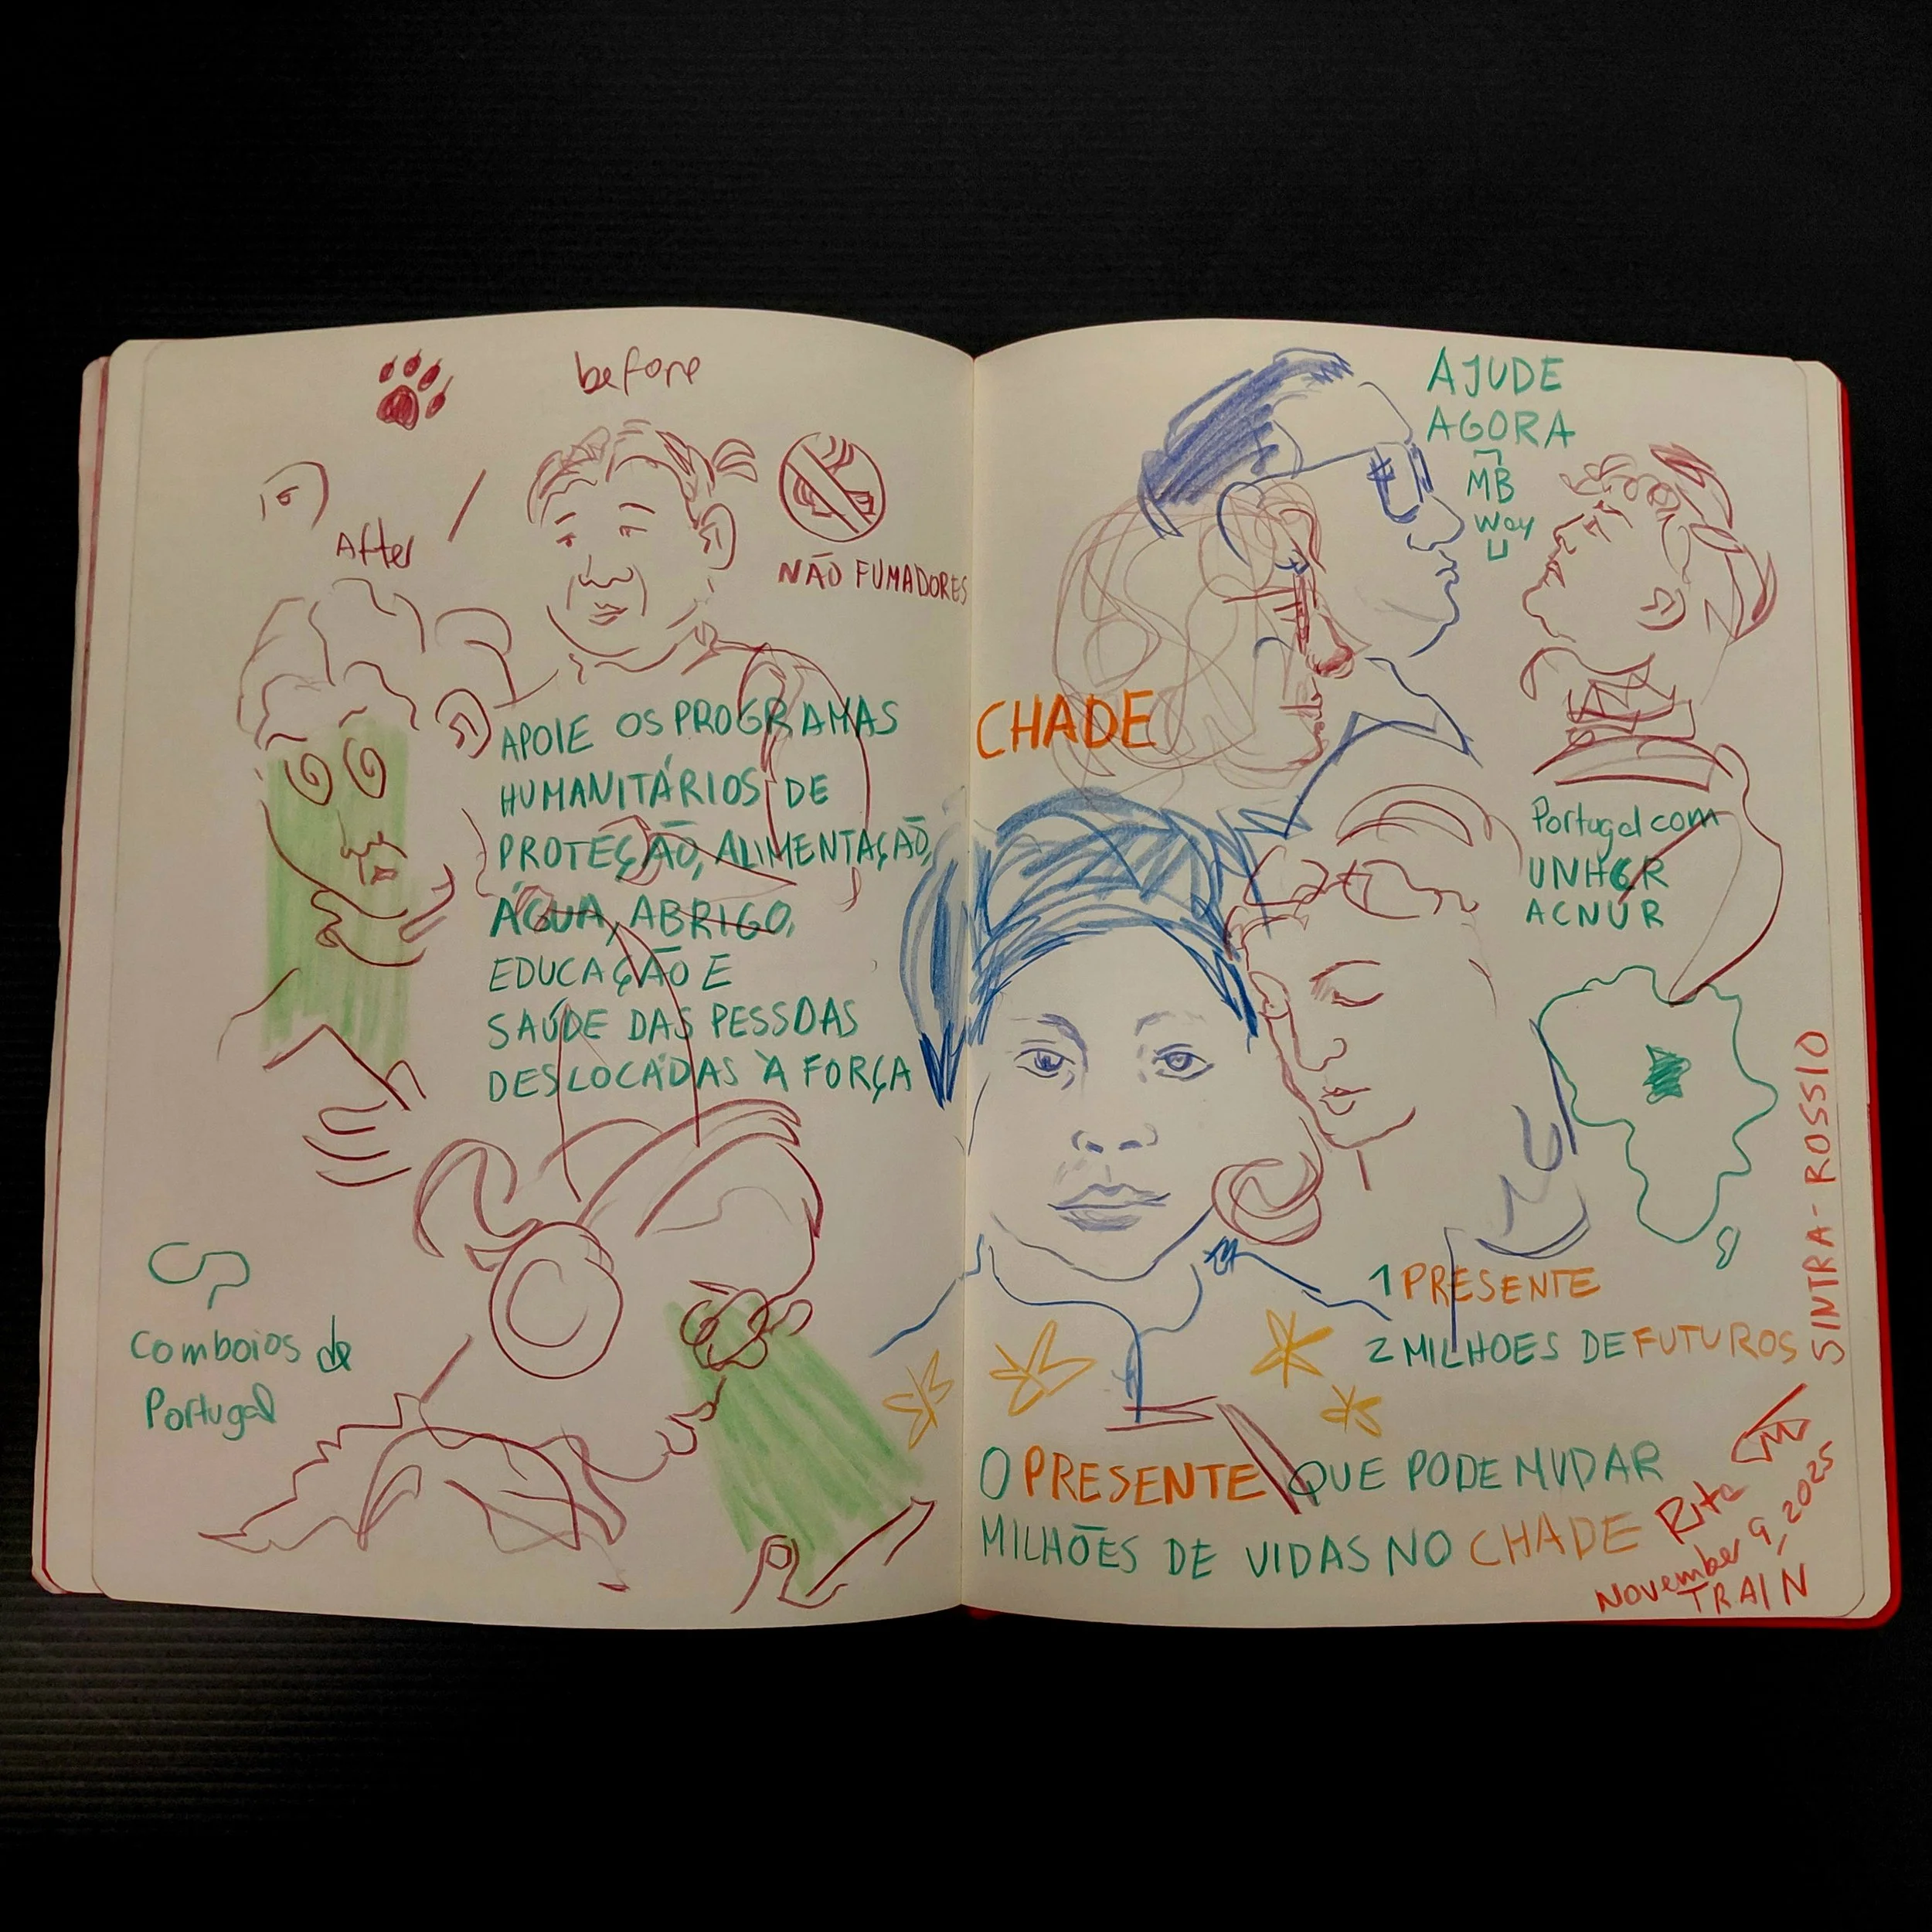 before
After
NÃO FUMADORES
APOIE OS PROGRAMAS
HUMANITÁRIOS DE
PROTEÇÃO, ALIMENTAÇÃO,
ÁGUA, ABRIGO,
EDUCAÇÃO E
SAÚDE DAS PESSOAS
DESLOCADAS À FORÇA
CP
Comboios de
Portugal
AJUDE
AGORA
MB
Way
CHADE
Portugal com
UNHCR
ACNUR
SINTRA-ROSSIO
1 PRESENTE
2 MILHOES DE FUTUROS
O PRESENTE QUE PODE MUDAR
MILHÕES DE VIDAS NO CHADE
Rita
November 9, 2025
TRAIN